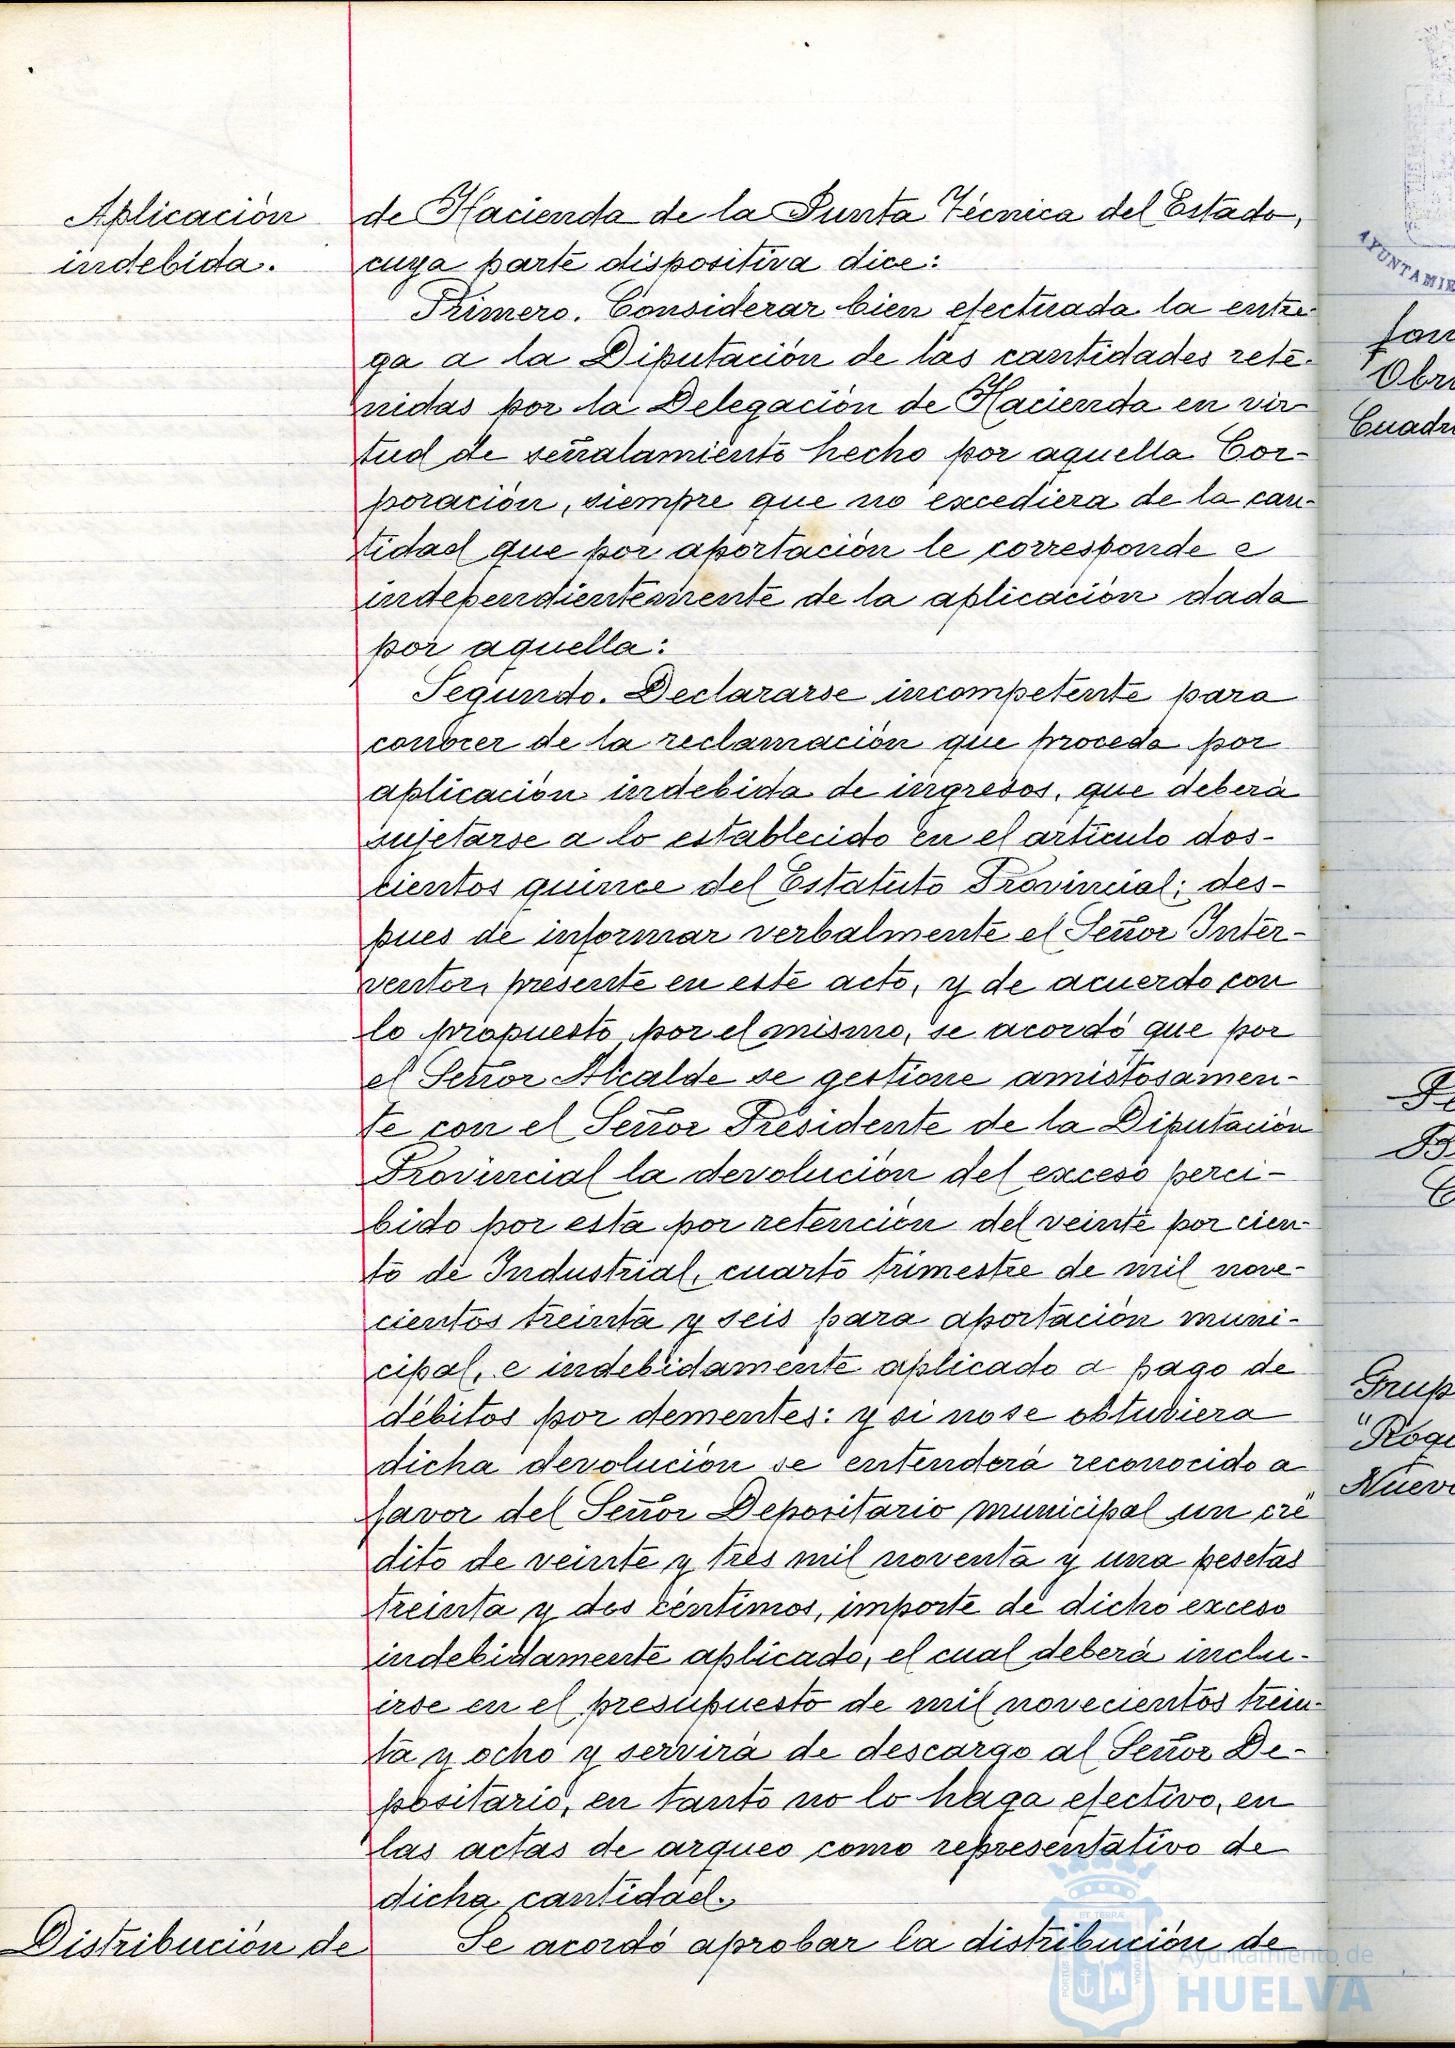 Aplicación
indebida.
de Hacienda de la Junta Técnica del Estado,
cuya parte dispositiva dice:
Primero. Considerar bien efectuada la entre-
ga a la Diputación de las cantidades rete-
nidas por la Delegación de Hacienda en vir-
tud de señalamiento hecho por aquella Cor-
poración, siempre que no excediera de la can-
tidad que por aportación le corresponde e
independientemente de la aplicación dada
por aquella:
Segundo. Declararse incompetente para
conocer de la reclamación que proceda por
aplicación indebida de ingresos, que deberá
sujetarse a lo establecido en el artículo dos-
cientos quince del Estatuto Provincial; des-
pues de informar verbalmente el Señor Inter-
ventor, presente en este acto, y de acuerdo con
lo propuesto por el mismo, se acordó que por
el Señor Alcalde se gestione amistosamen-
te con el Señor Presidente de la Diputación
Provincial la devolución del exceso perci-
bido por esta por retención del veinte por cien-
to de Industrial, cuarto trimestre de mil nove-
cientos treinta y seis para aportación muni-
cipal, e indebidamente aplicado a pago de
débitos por dementes: y si no se obtuviera
dicha devolución se entenderá reconocido a
favor del Señor Depositario municipal un cré
dito de veinte y tres mil noventa y una pesetas
treinta y dos céntimos, importe de dicho exceso
indebidamente aplicado, el cual deberá inclu-
irse en el presupuesto de mil novecientos trein-
ta y ocho y servirá de descargo al Señor De-
positario, en tanto no lo haga efectivo, en
las actas de arqueo como representativo de
dicha cantidad.
Distribución de
Se acordó aprobar la distribución de
Ayuntamiento de
HUELVA